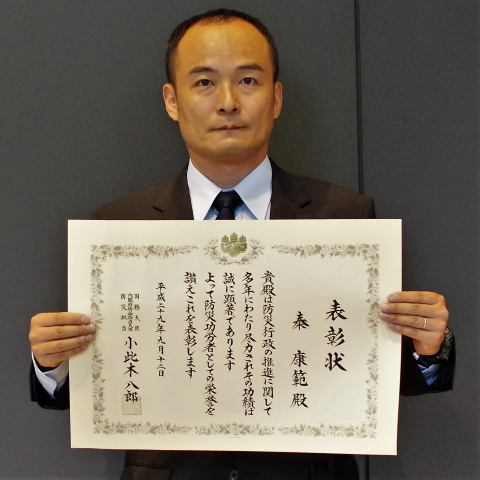 表彰状
秦 康範 殿
貴殿は防災行政の推進に関して
多年にわたり尽力されその功績は
誠に顕著であります
よって防災功労者としての栄誉を
讃えこれを表彰します
平成二十九年九月十二日
国務大臣
内閣府特命担当大臣
防災担当
小此木八郎